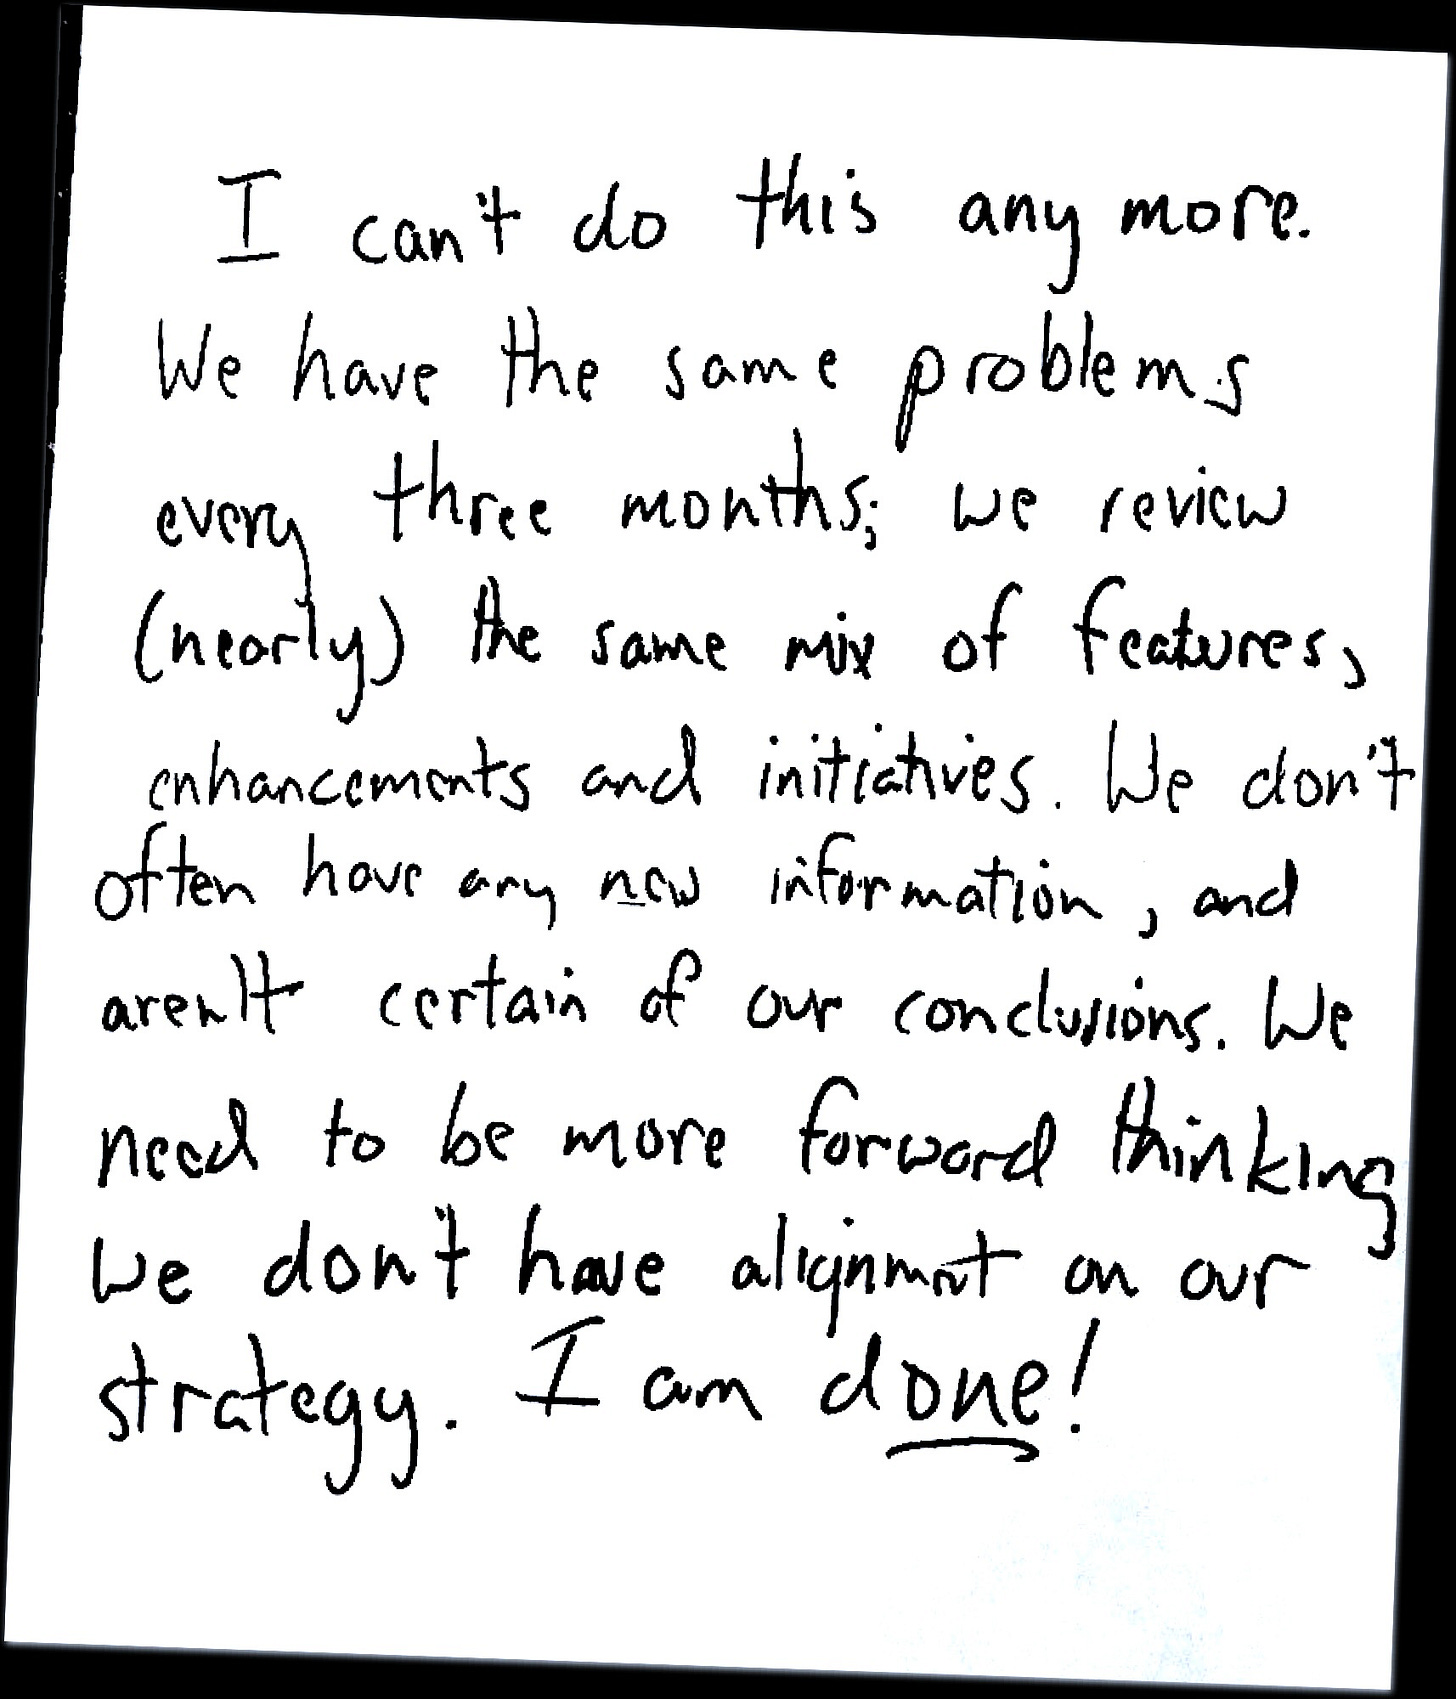 I can't do this any more.
We have the same problems
every three months; we review
(nearly) the same mix of features,
enhancements and initiatives. We don't
often have any new information, and
aren't certain of our conclusions. We
need to be more forward thinking
we don't have alignment on our
strategy. I am done!